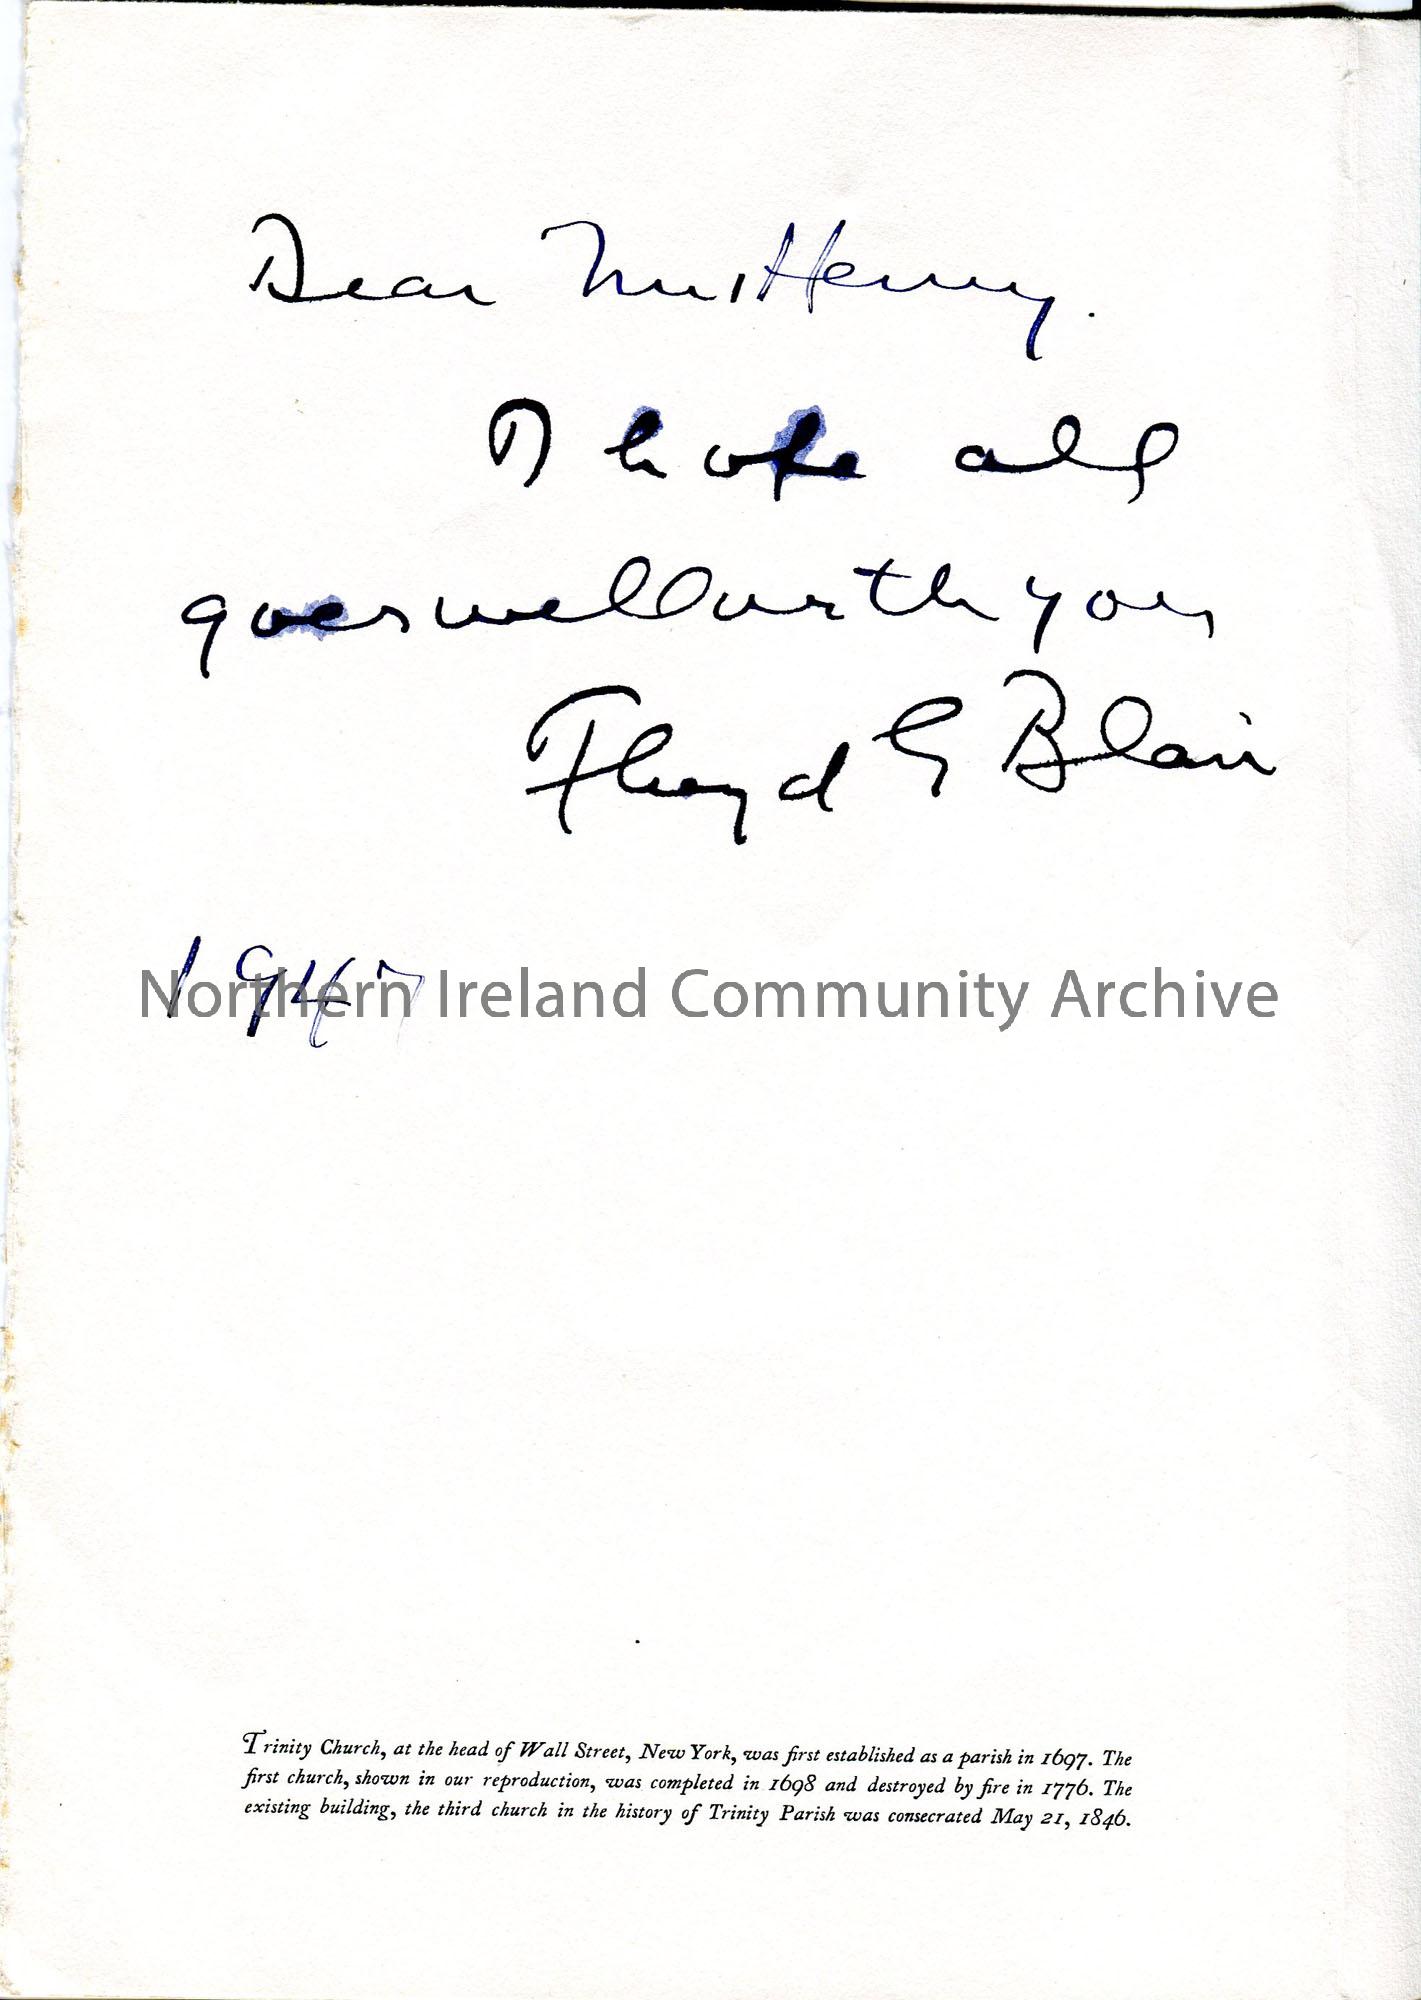 Dear Mrs Henry.
I hope all
goes well with you
Floyd G Blair
1947
Northern Ireland Community Archive
Trinity Church, at the head of Wall Street, New York, was first established as a parish in 1697. The
first church, shown in our reproduction, was completed in 1698 and destroyed by fire in 1776. The
existing building, the third church in the history of Trinity Parish was consecrated May 21, 1846.